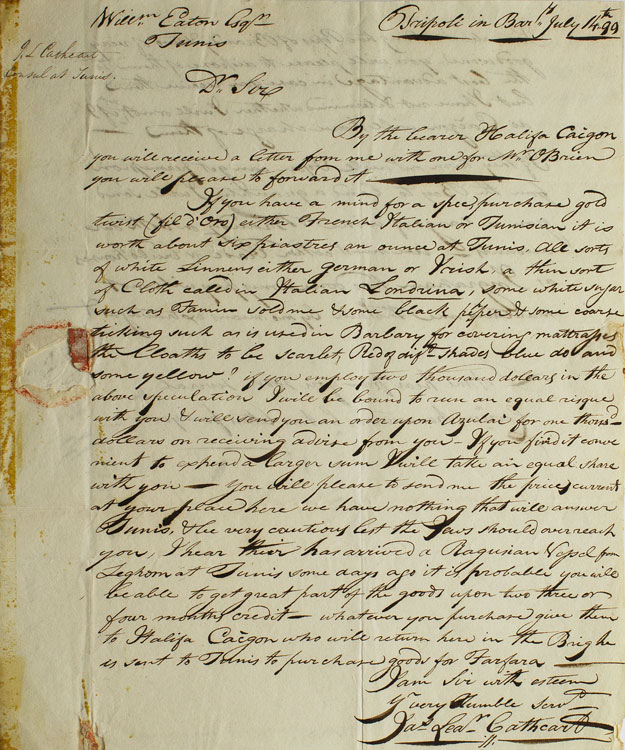 Willm Eaton Esqr
Tunis
Tripoli in Bary July 14th 99
J L Cathcart
Consul at Tunis.
Dr Sir
By the bearer Halifa Caigon
you will receive a letter from me with one for Mr O'Brien
you will please to forward it
If you have a mind for a spec, purchase gold
twist (fil d'Oro) either French Italian or Tunisian it is
worth about six piastres an ounce at Tunis. All sorts
of white Linnens either German or Irish a thin sort
of Cloth caled in Italian Londrina, some white sugar
such as Famin sold me & some black peper & some coarse
ticking such as is used in Barbary for covering mattrasses
the Cloaths to be scarlet, Red of difft shades blue do and
some yellow? if you employ two thousand dollars in the
above speculation I will be bound to run an equal risque
with you & will send you an order upon Azulai for one thousd
dollars on receiving advise from you - If you find it conve
nient to expend a larger sum I will take an equal share
with you — You will please to send me the prices current
at your place here we have nothing that will answer
Tunis, & be very cautious lest the Jaws should over reach
you, I hear their has arrived a Ragusian Vessel from
Leghorn at Tunis some days ago it is probable you will
be able to get great part of the goods upon two three or
four months credit — whatever you purchase give them
to Halifa Caigon who will return here in the Brig he
is sent to Tunis to purchase goods for Farfara
I am Sir with esteem
Yr very Humble Servt
Jas Lear Cathcart